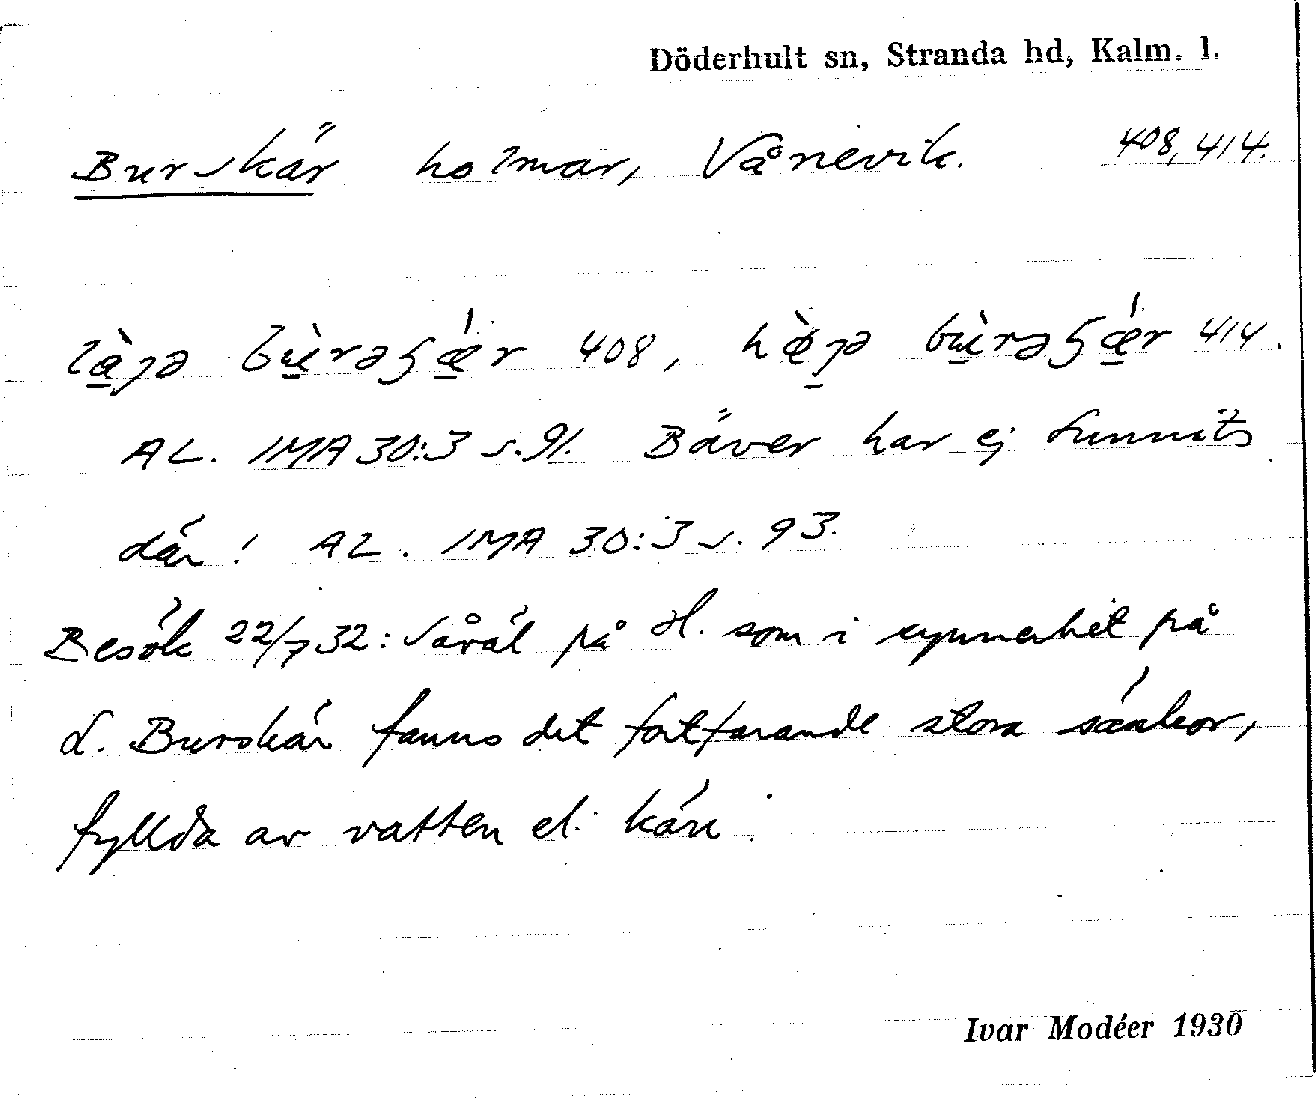 Döderhult sn, Stranda hd, Kalm. l.
Burskär holmar, Vånevik. 408, 414.
408, 414.
AL. IMA 30:3 s. 91. Bäver har ej funnits
där! AL. IMA 30:3 s. 93.
Besök 22/7 32: Såväl på H. som i synnerhet på
L. Burskär fanns det fortfarande stora sänkor,
fyllda av vatten el. kärr.
Ivar Modéer 1930